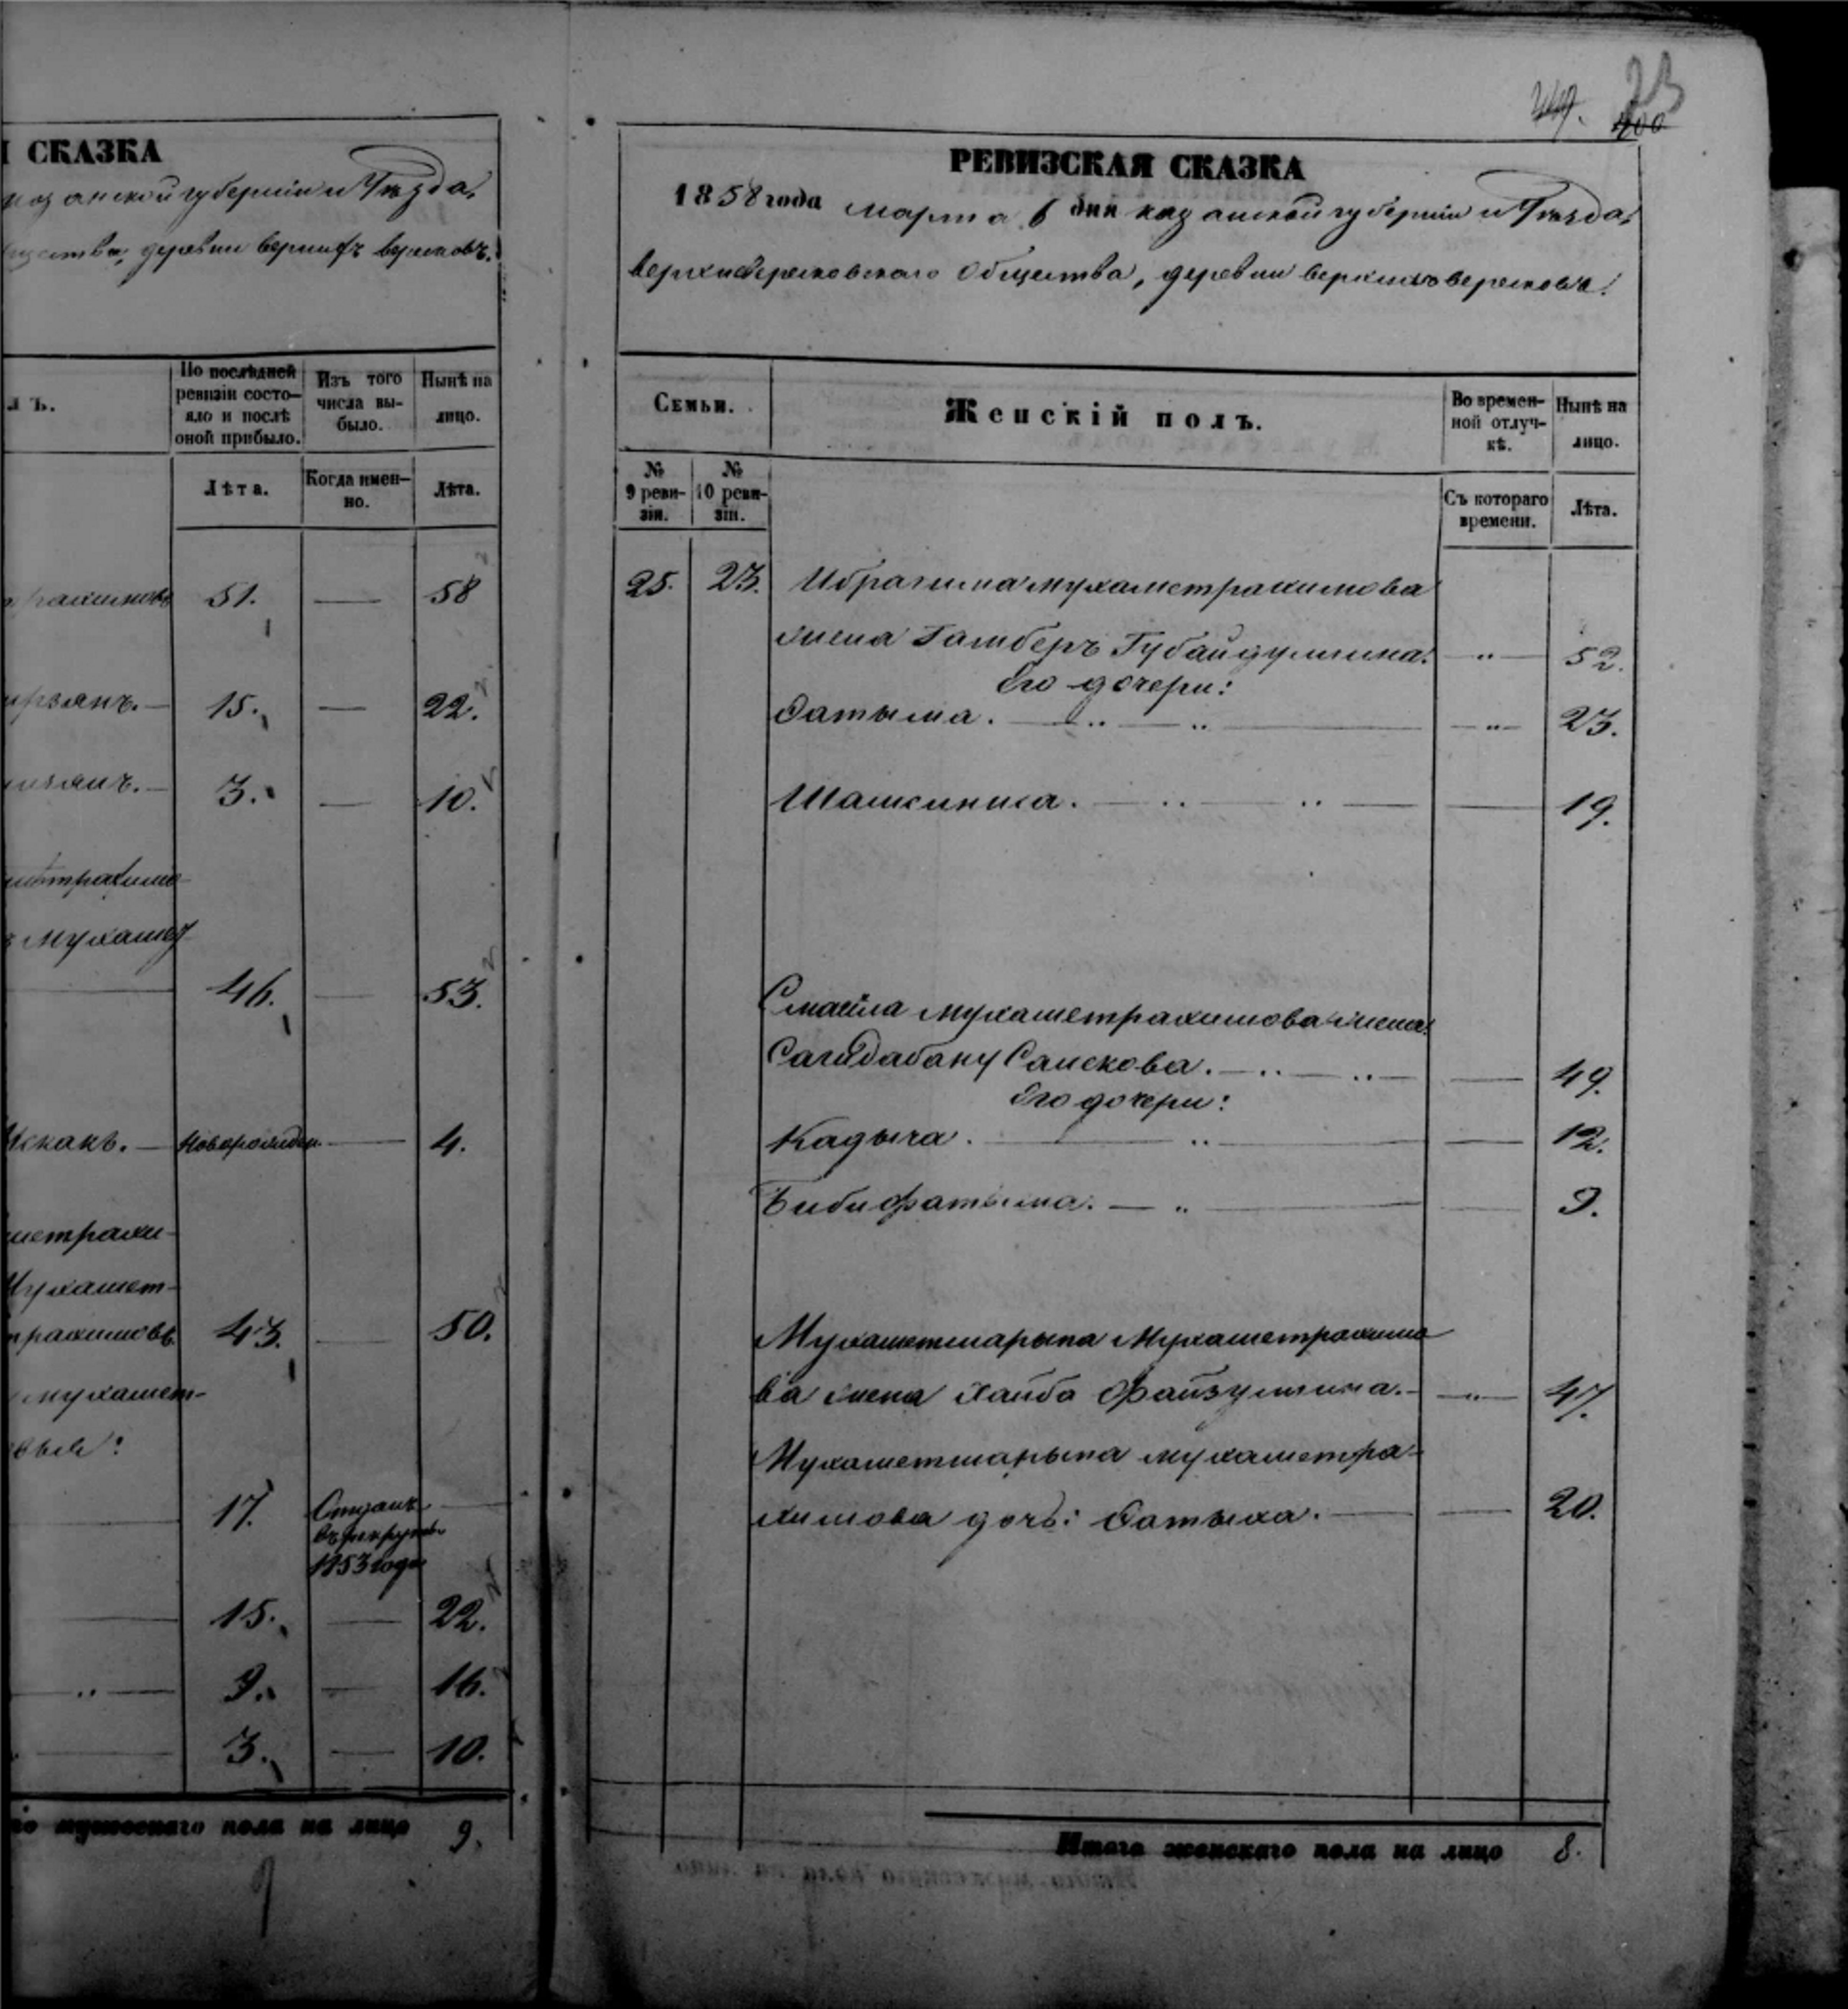 СКАЗКА
казанской губерніи и Уѣзда,
щества, деревни верхнѣ вересковъ.
лъ.
По послѣдней ревизіи состо-
яло и послѣ
оной прибыло.
Изъ того
числа вы-
было.
Нынѣ на
лицо.
Лѣта.
Когда имен-
но.
Лѣта.
рахимовъ 51. — 58
15. — 22.
3. — 10.
метрахимо-
Мухамет
46. — 53.
Искакъ. — Новорожден — 4.
метрахи-
Мухамет-
рахимовъ 43. — 50.
Мухамет-
17. Отданъ
въ рекруты
1853 года
15. — 22.
9. — 16.
3. — 10.
мужескаго пола на лицо 9.
9
23
400
РЕВИЗСКАЯ СКАЗКА
1858 года марта 6 дня казанской губерніи и Уѣзда,
верхневересковского Общества, деревни верхнихъ вересковъ.
Семьи.
Женскій полъ.
Во времен-
ной отлуч-
кѣ.
Нынѣ на
лицо.
№
9 реви-
зіи.
№
10 реви-
зіи.
Съ котораго
времени.
Лѣта.
25. 23. Ибрагима Мухаметрахимова
жена Гамберъ Губайдуллина. — „ — 52.
Его дочери:
Фатыма. — „ — „ — „ — 23.
Шамсиниса. — „ — „ — 19.
Смагила Мухаметрахимова жена
Сагидабану Саискова. — „ — „ — 49.
Его дочери:
Кадыча. — „ — 12.
Бибифатыма. — „ — 9.
Мухаметшарыпа Мухаметрахимо-
ва жена Хаиба Файзуллина. — „ — 47.
Мухаметшарыпа Мухаметра-
химова дочь: Фатыха. — 20.
Итого женскаго пола на лицо 8.